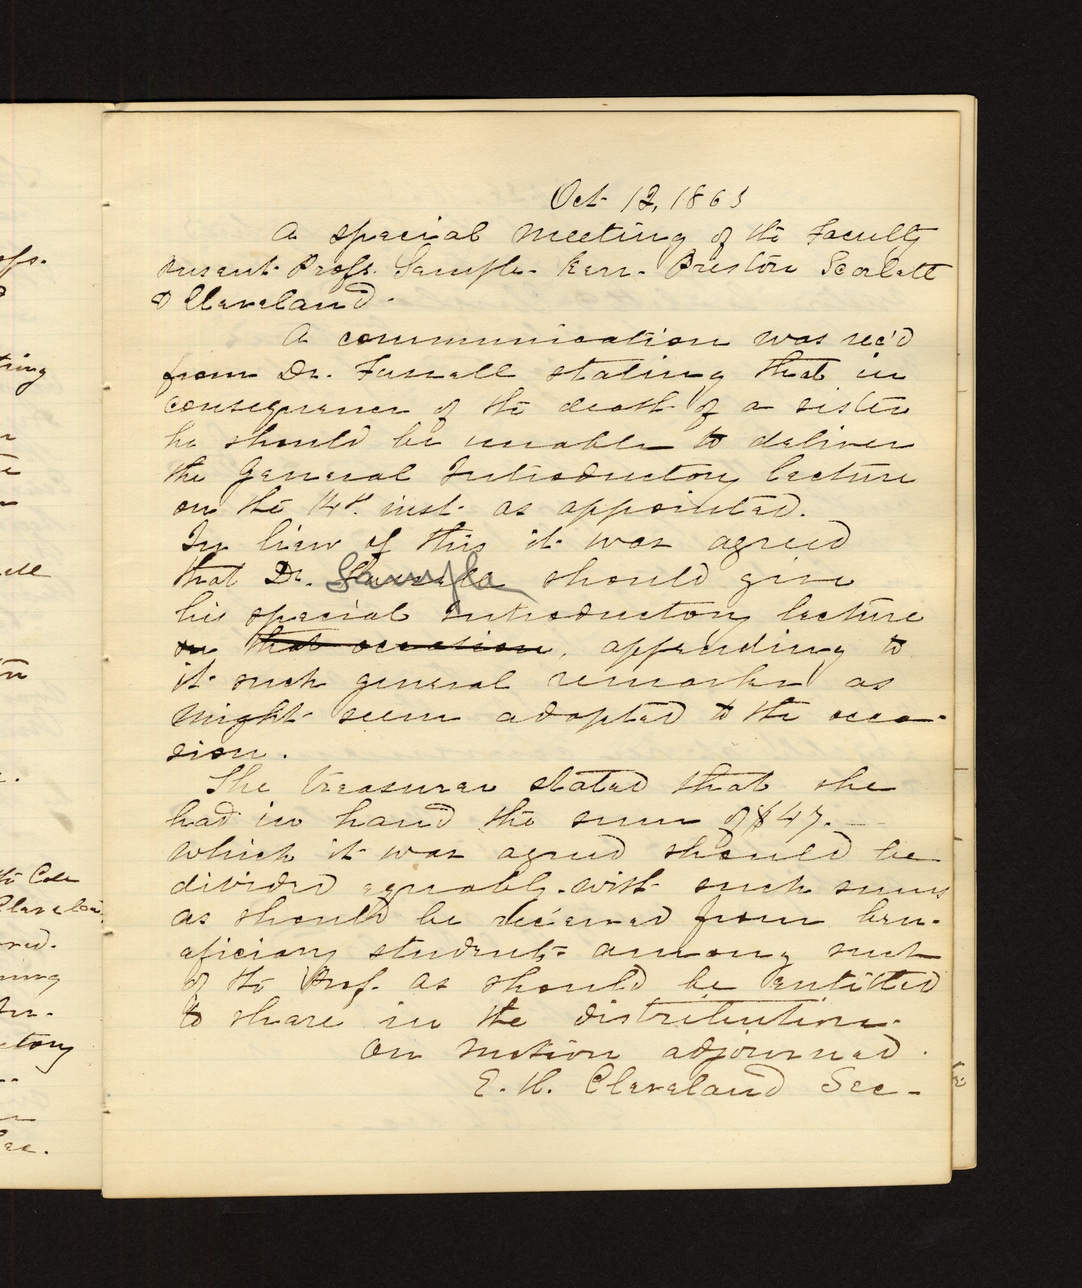 Oct 12, 1863
A special meeting of the Faculty
Present Profs. Sample - Kerr - Preston Scarlett
& Cleveland.
A communication was rec'd
from Dr. Fussell stating that in
consequence of the death of a sister
he should be unable to deliver
the General Introductory lecture
on the 14th inst. as appointed.
In lieu of this it was agreed
that Dr. Sample should give
his special Introductory lecture
on that occasion, appending to
it such general remarks as
might seem adapted to the occa-
sion.
The treasurer stated that she
had in hand the sum of $47.—
which it was agreed should be
divided equably with such sums
as should be received from ben-
eficiary students among such
of the Prof. as should be entitled
to share in the distribution.
On motion adjourned.
E. H. Cleveland Sec-